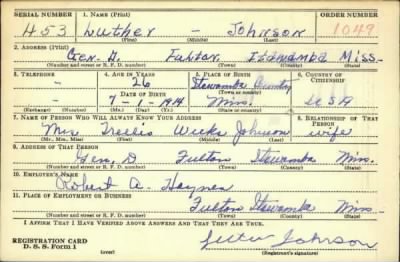 SERIAL NUMBER 1. NAME (Print) ORDER NUMBER
453 Luther - Johnson 1049
(First) (Middle) (Last)
2. ADDRESS (Print)
Gen. D. Fulton Itawamba Miss.
(Number and street or R. F. D. number) (Town) (County) (State)
3. TELEPHONE 4. AGE IN YEARS 5. PLACE OF BIRTH 6. COUNTRY OF CITIZENSHIP
- 26 Itawamba County
DATE OF BIRTH (Town) (County)
7-1-1914 Miss. USA
(Exchange) (Number) (Mo.) (Day) (Yr.) (State or country)
7. NAME OF PERSON WHO WILL ALWAYS KNOW YOUR ADDRESS 8. RELATIONSHIP OF THAT PERSON
Mrs Weeks Johnson wife
(Mr., Mrs., Miss) (First) (Middle) (Last)
9. ADDRESS OF THAT PERSON
Gen. D Fulton Itawamba Miss.
(Number and street or R. F. D. number) (Town) (County) (State)
10. EMPLOYER'S NAME
Robert A.
11. PLACE OF EMPLOYMENT OR BUSINESS
Fulton Itawamba Miss
(Number and street or R. F. D. number) (Town) (County) (State)
I AFFIRM THAT I HAVE VERIFIED ABOVE ANSWERS AND THAT THEY ARE TRUE.
REGISTRATION CARD
D. S. S. Form 1 (over) Johnson
(Registrant's signature)